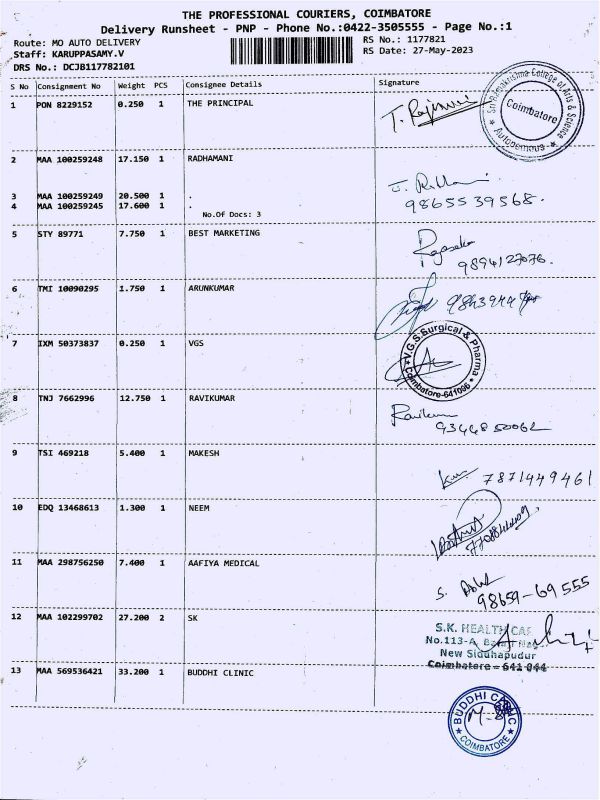 THE PROFESSIONAL COURIERS, COIMBATORE
Delivery Runsheet - PNP - Phone No.:0422-3505555 - Page No.:1
Route: MO AUTO DELIVERY
Staff: KARUPPASAMY.V
DRS No.: DCJB117782101
RS No.: 1177821
RS Date: 27-May-2023
S No Consignment No Weight PCS Consignee Details Signature
1 PON 8229152 0.250 1 THE PRINCIPAL
Sri Ramakrishna College of Arts & Science
Coimbatore
2 MAA 100259248 17.150 1 RADHAMANI
3 MAA 100259249 20.500 1 .
4 MAA 100259245 17.600 1 .
No.Of Docs: 3
9865539568.
5 STY 89771 7.750 1 BEST MARKETING
9894127076.
6 TMI 10090295 1.750 1 ARUNKUMAR
7 IXM 50373837 0.250 1 VGS
V.G.S.Surgical & Pharma
Coimbatore-641006
8 TNJ 7662996 12.750 1 RAVIKUMAR
Ravikumar
9344850062
9 TSI 469218 5.400 1 MAKESH
7871449461
10 EDQ 13468613 1.300 1 NEEM
11 MAA 298756250 7.400 1 AAFIYA MEDICAL
98659-69555
12 MAA 102299702 27.200 2 SK
S.K. HEALTH CARE
No.113-A,
New Siddhapudur
Coimbatore - 641 044
13 MAA 569536421 33.200 1 BUDDHI CLINIC
BUDDHI CLINIC
COIMBATORE